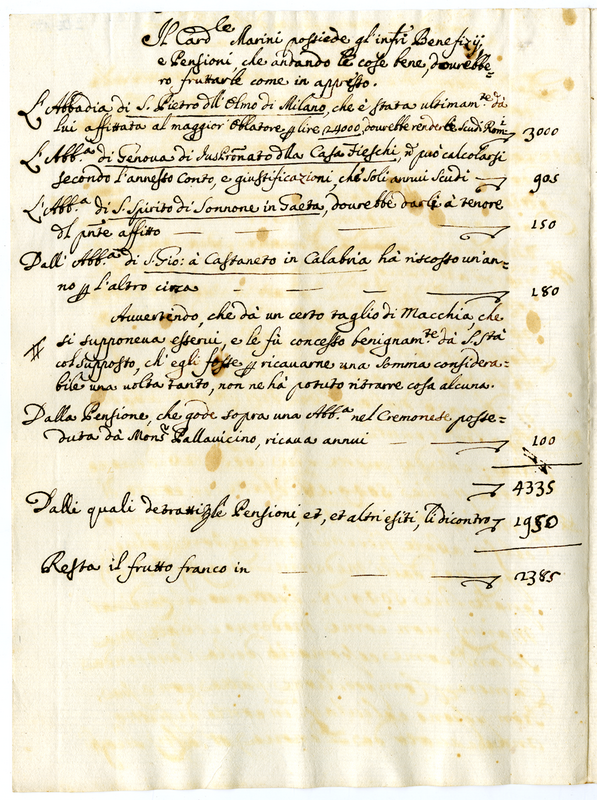 Il Card.le Marini possiede gl'infri Benefizij,
e Pensioni, che andando le cose bene, dourebbe=
ro fruttarle come in appresso.
L'Abbadia di S. Pietro dll'Olmo di Milano, che è stata ultimam.te dà
lui affittata al maggior Oblatore p lire 24000, pourebbe rendere Scudi Romi 3000
L'Abb.a di Genova di Juspronato dlla Casa Fieschi, si può calcolarsi
secondo l'annesso Conto, e giustificazioni, che soli annui Scudi 905
L'Abb.a di S. Spirito di Sonnone in Gaeta, dourebbe darli à tenore
dl pnte affitto 150
Dall'Abb.a di S. Gio: à Castaneto in Calabria hà riscosso un'an=
no p l'altro circa 180
Auuertendo, che dà un certo taglio di Macchia, che
si supponeua esserui, e le fù concesso benignam.te dà S. Stà
col supposto, ch'egli fosse p ricauarne una somma considera=
bile una uolta tanto, non ne hà potuto ritrarre cosa alcuna.
Dalla Pensione, che gode sopra una Abb.a nel Cremonese posse=
duta dà Mons.r Pallauicino, ricaua annui 100
4335
Dalli quali detrattigle Pensioni, et, et altri esiti, li dicontro 1950
Resta il frutto franco in 2385